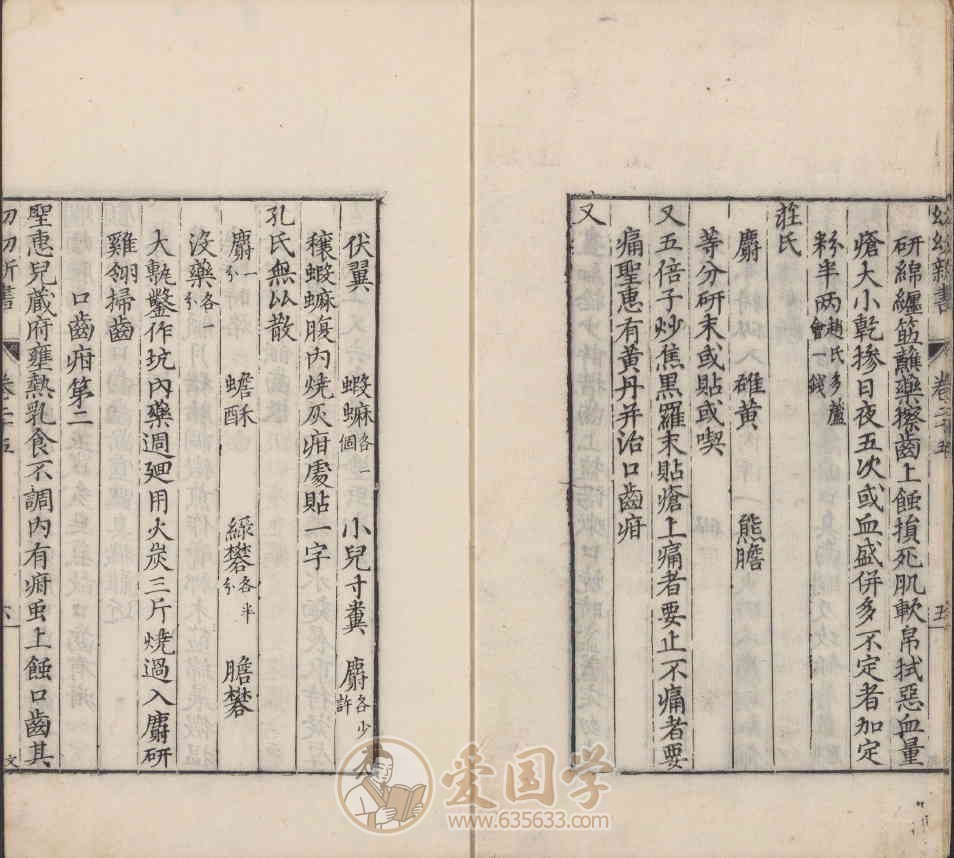 幼幼新書 卷二十五 五
研綿纏筯蘸藥擦齒上蝕損死肌軟帛拭惡血量
瘡大小乾摻日夜五次或血盛併多不定者加定
粉半兩趙氏多蘆會一錢
莊氏
麝 雄黃 熊膽
等分研末或貼或喫
又五倍子炒焦黑羅末貼瘡上痛者要止不痛者要
痛聖惠有黃丹并治口齒疳
又
伏翼 蝦蟆各一個 小兒寸糞 麝各少許
穰蝦蟆腹內燒灰疳處貼一字
孔氏無比散
麝一分 蟾酥 綠礬各半分 膽礬
沒藥各一分
大甎鑿作坑內藥週廻用火炭三斤燒過入麝研
雞翎掃齒
口齒疳第二
聖惠兒藏府壅熱乳食不調內有疳虫上蝕口齒其
幼幼新書 卷二十五 六
文
爱国学
www.635633.com